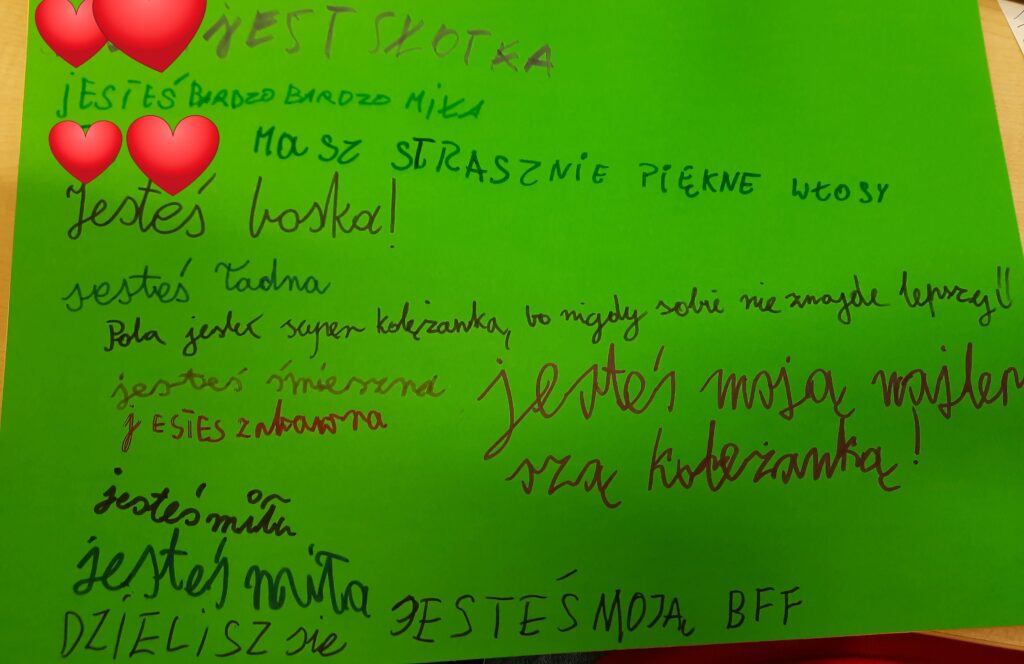 jEST SŁOTKA
jESTEŚ BARDZO BARDZO MIŁA
MASZ STRASZNIE PIĘKNE WŁOSY
Jesteś boska!
jesteś ładna
Pola jesteś super koleżanką, bo nigdy sobie nie znajdę lepszej
jesteś śmieszna
jESTES zabawna
jesteś moją najlep
szą koleżanką!
jesteś miła
jesteś miła
DZIELISZ się
JESTEŚ MOJĄ BFF